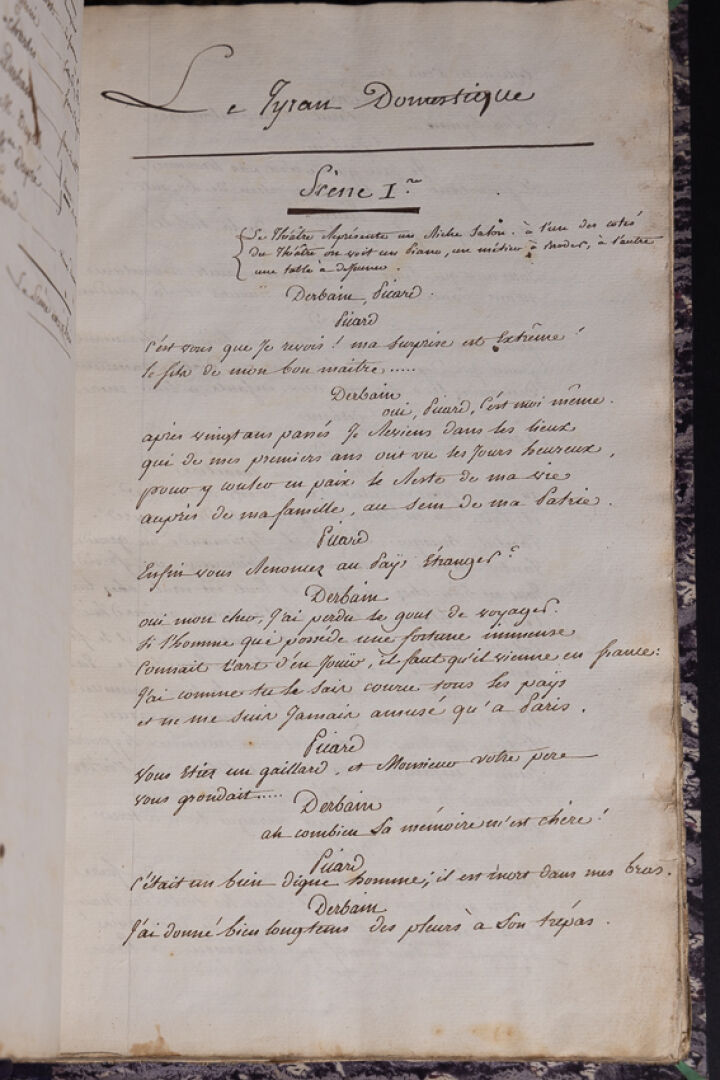 Le Tyran Domestique
Scène I.re
Le Théâtre Représente un Riche Salon. à l'un des cotés
du Théâtre on voit un Piano, un métier à broder, à l'autre
une table à déjeuner.
Derbain, Picard.
Picard
C'est vous que Je revois! ma surprise est Extrême!
le fils de mon bon maitre.....
Derbain
oui, Picard, C'est moi même.
après vingt ans passés Je Reviens dans les lieux
qui de mes premiers ans ont vu les Jours heureux,
pour y couler en paix le Reste de ma vie
auprès de ma famille, au sein de ma Patrie.
Picard
Enfin vous Renoncez au Pays Etranger?
Derbain
oui mon cher, J'ai perdu le gout de voyager.
Si l'homme qui possède une fortune immense
Connait l'art d'en Jouir, il faut qu'il vienne en france:
J'ai comme tu le sais couru tous les pays
et ne me suis Jamais amusé qu'a Paris.
Picard
Vous Etiez un gaillard, et Monsieur votre pere
vous grondait.....
Derbain
ah combien Sa mémoire m'est chère!
Picard
C'était un bien digne homme; il est mort dans mes bras.
Derbain
J'ai donné bien longtems des pleurs à Son trépas.